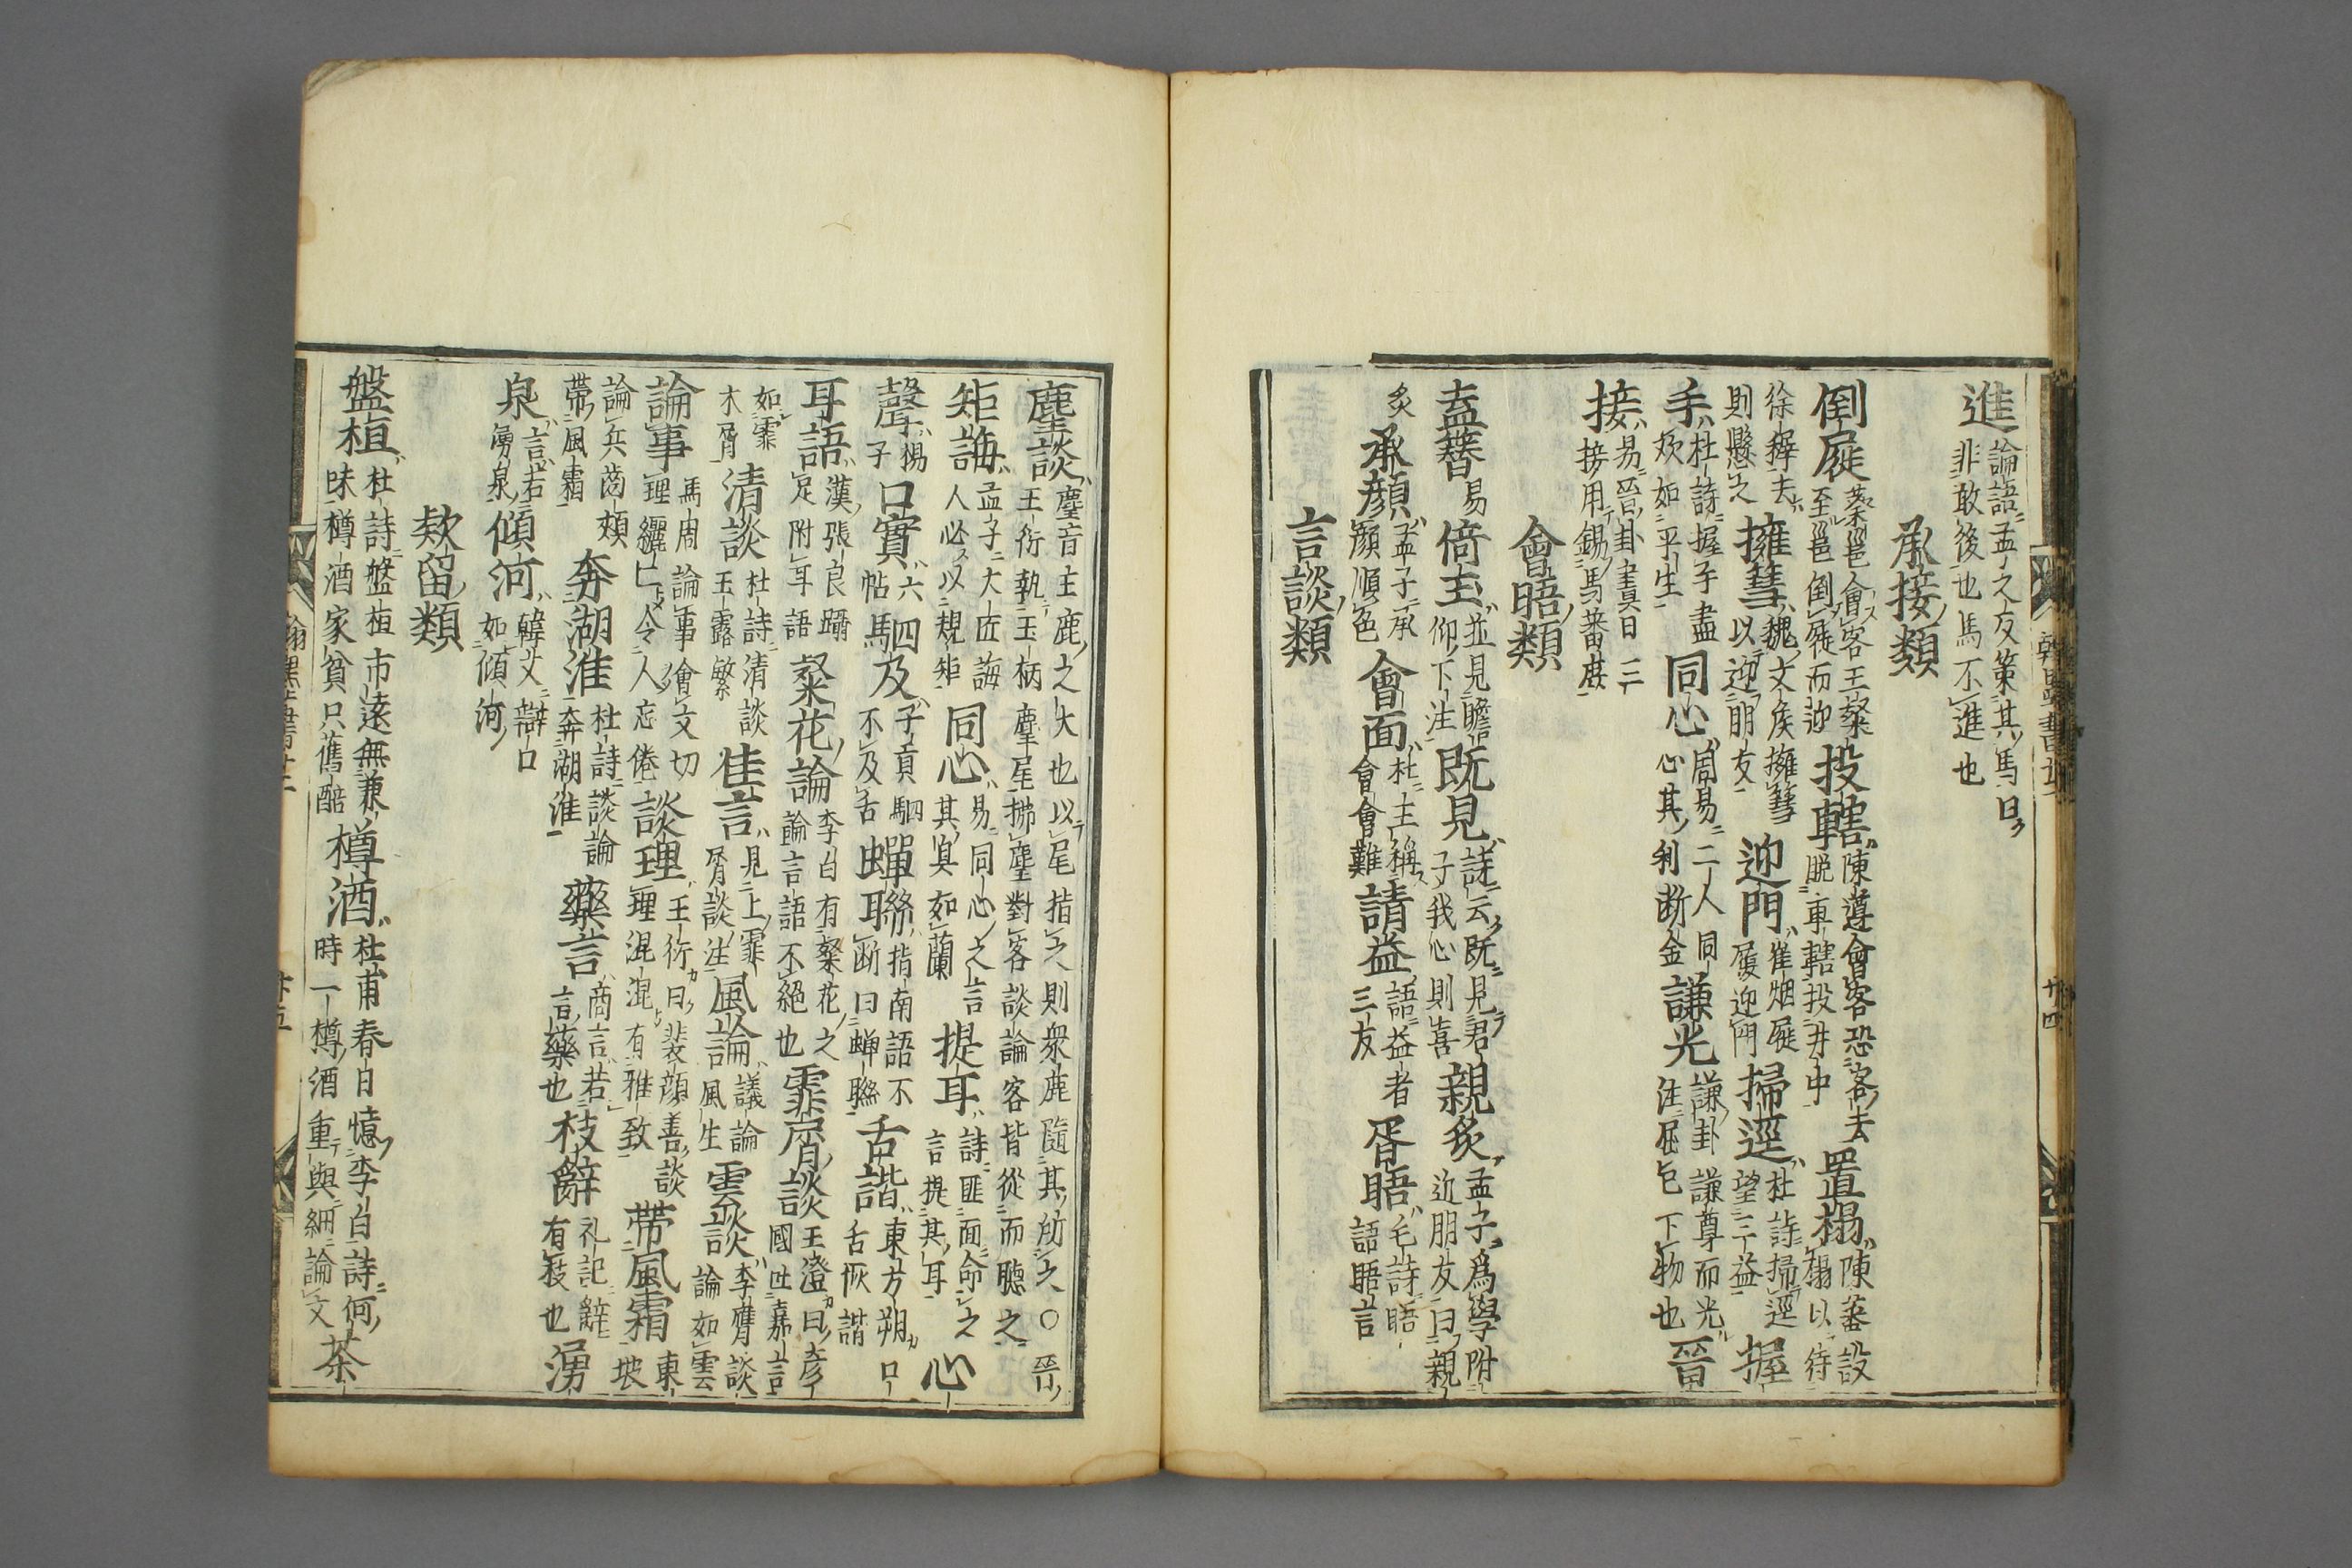 進 論語孟之反策其馬曰非敢後也馬不進也
承接類
倒屣 蔡邕會客王粲至邕倒屣而迎 投轄 陳遵會客恐客去脫車轄投井中 置榻 陳蕃設榻以待
徐穉去則懸之 擁彗 魏文侯擁彗以迎朋友 迎門 崔烟屣履迎門 掃逕 杜詩掃逕望三益 握
手 杜詩握手盡歡如平生 同心 周易二人同心其利斷金 謙光 謙卦謙尊而光注屈己下物也 晉
接 易晉卦晝日三接用錫馬蕃庶
會晤類
盍簪 易 倚玉 並見瞻仰下注 既見 詩云既見君子我心則喜 親炙 孟子爲學附近朋友曰親
炙 承顏 孟子承顏順色 會面 杜主稱會會難 請益 語益者三友 胥晤 毛詩晤語晤言
言談類
廿四
麈談 麈音主鹿之大也以尾指之則衆鹿隨其所之〇晉王衍執玉柄麈尾拂麈對客談論客皆從而聽之
矩誨 孟子大匠誨人必以規矩 同心 易同心之言其臭如蘭 提耳 詩匪面命之言提其耳 心
聲 楊子 口實 六帖 駟及 子貢駟不及舌 蟬聯 指南語不斷曰蟬聯 舌諧 東方朔口舌恢諧
耳語 漢張良躡足附耳語 粲花論 李白有粲花之論言語不絕也 霏屑談 王澄曰彥國吐嘉言
如霏木屑 清談 杜詩清談玉露繁 佳言 見上霏屑談注 風論 議論風生 雲談 李膺談論如雲
論事 馬周論事會文切理纚纚令人忘倦 談理 王衍曰裴頠善談理混混有雅致 帶風霜 東坡
論兵齒頰帶風霜 奔湖淮 杜詩談論奔湖淮 藥言 商言若言藥也 枝辭 礼記辭有枝也 湧
泉 言若湧泉 傾河 韓文辯口如傾河
欵留類
盤植 杜詩盤植市遠無兼味樽酒家貧只舊醅 樽酒 杜甫春日憶李白詩何時一樽酒重與細論文 茶
翰墨書十二
廿五